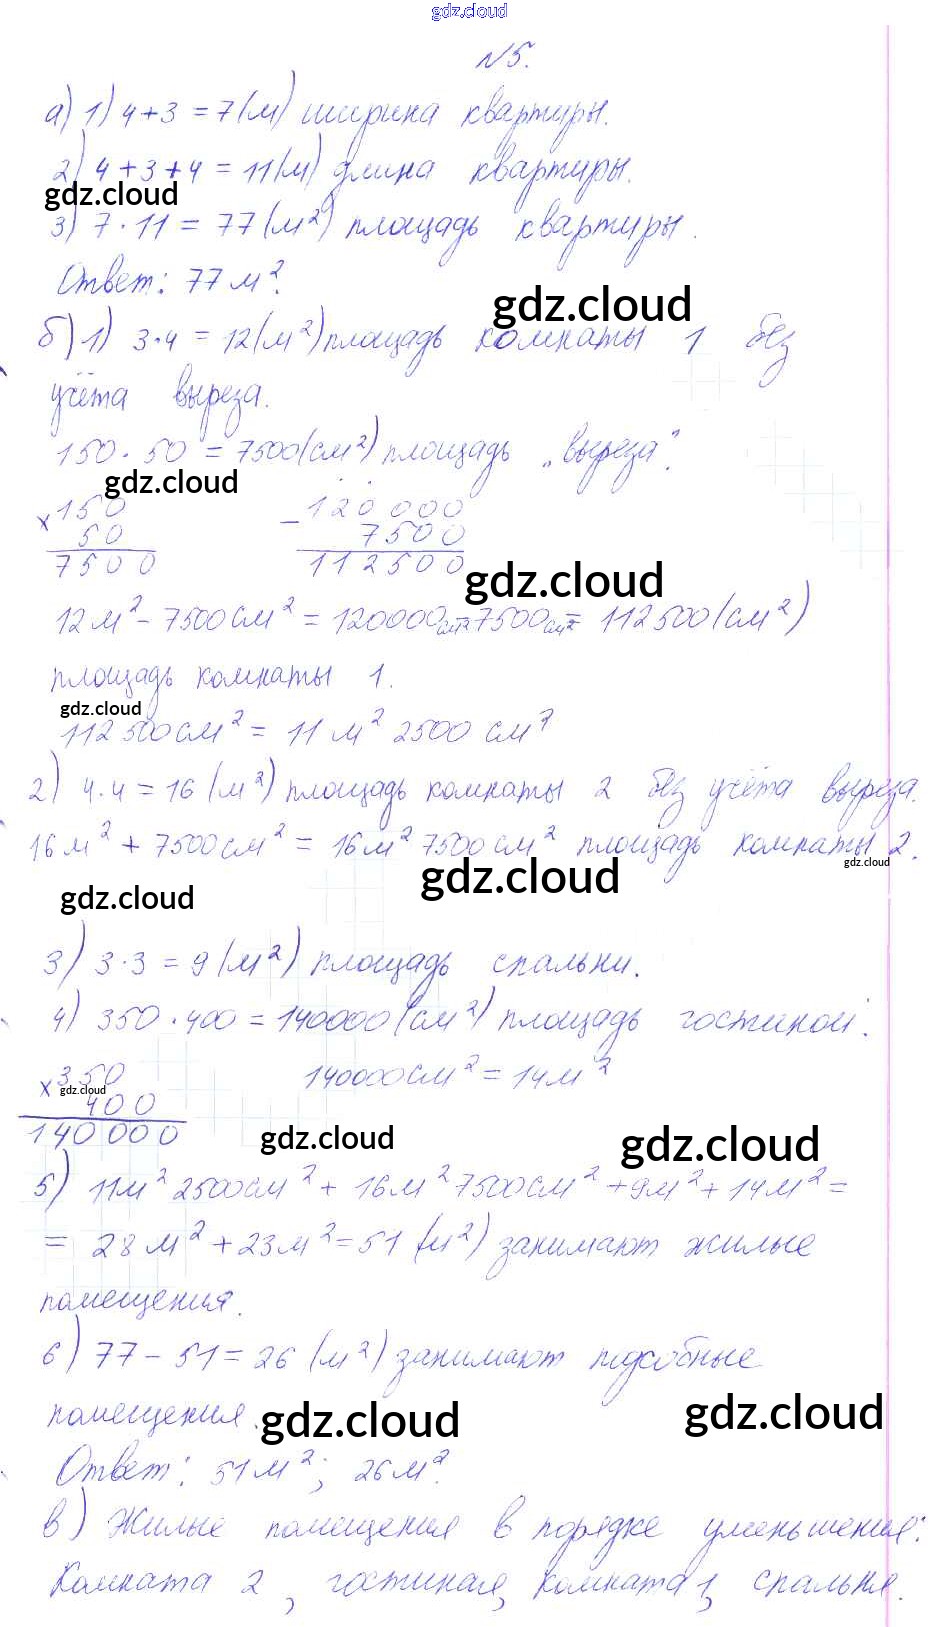 gdz.cloud
№5.
а) 1) 4+3 = 7(м) ширина квартиры.
2) 4+3+4 = 11(м) длина квартиры.
gdz.cloud
3) 7·11 = 77(м²) площадь квартиры.
Ответ: 77м².
gdz.cloud
б) 1) 3·4 = 12(м²) площадь комнаты 1 без
учёта выреза.
150·50 = 7500(см²) площадь „выреза“.
gdz.cloud
×150 −120000
50 7500
7500 112500
gdz.cloud
12м² − 7500см² = 120000см² − 7500см² = 112500(см²)
площадь комнаты 1.
gdz.cloud
112500см² = 11м² 2500см²
2) 4·4 = 16(м²) площадь комнаты 2 без учёта выреза.
16м² + 7500см² = 16м² 7500см² площадь комнаты 2.
gdz.cloud
gdz.cloud
gdz.cloud
3) 3·3 = 9(м²) площадь спальни.
4) 350·400 = 140000(см²) площадь гостиной.
×350 140000см² = 14м²
gdz.cloud
400
140000
gdz.cloud
gdz.cloud
5) 11м² 2500см² + 16м² 7500см² + 9м² + 14м² =
= 28м² + 23м² = 51(м²) занимают жилые
помещения.
6) 77 − 51 = 26(м²) занимают подсобные
помещения.
gdz.cloud
gdz.cloud
Ответ: 51м²; 26м².
в) Жилые помещения в порядке уменьшения:
Комната 2, гостиная, комната 1, спальня.